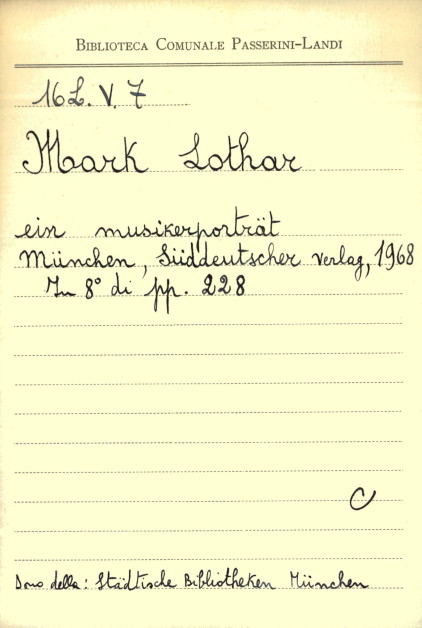 BIBLIOTECA COMUNALE PASSERINI-LANDI
16L. V. 7
Mark Lothar
ein musikerporträt
München, Süddeutscher Verlag, 1968
In 8° di pp. 228
C
Dono della: Städtische Bibliotheken München